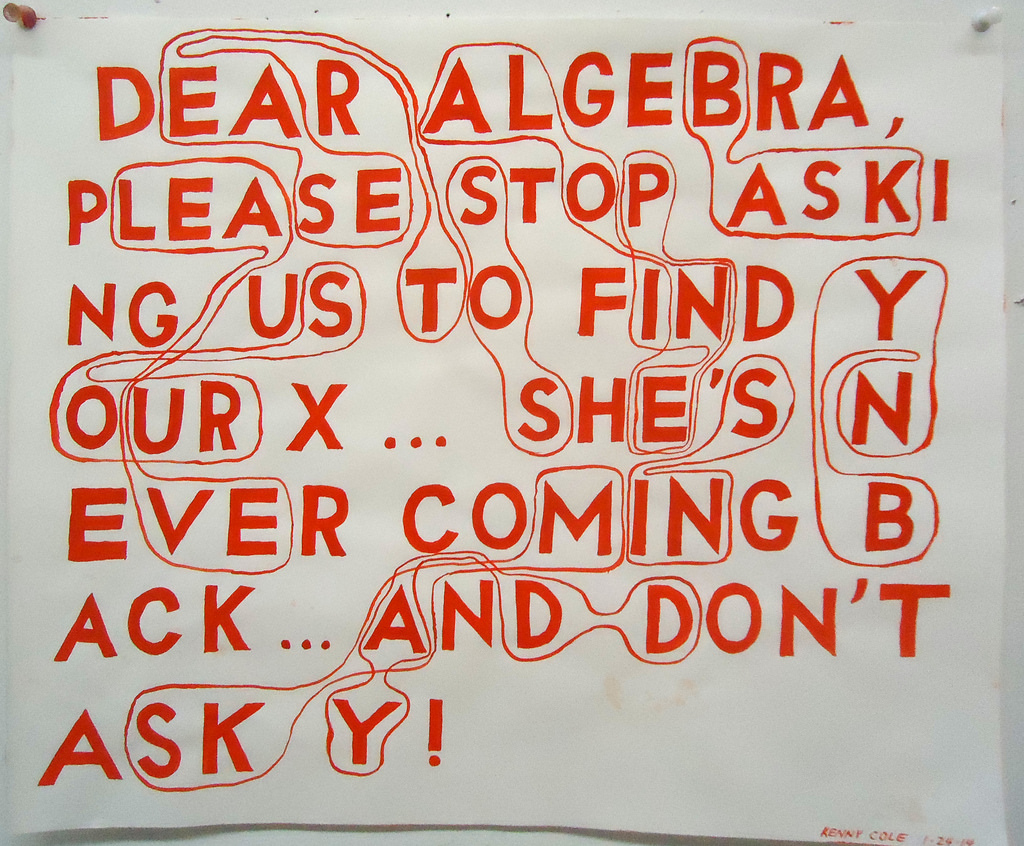 DEAR ALGEBRA,
PLEASE STOP ASKI
NG US TO FIND Y
OUR X ... SHE'S N
EVER COMING B
ACK ... AND DON'T
ASK Y!
KENNY COLE 1-24-14